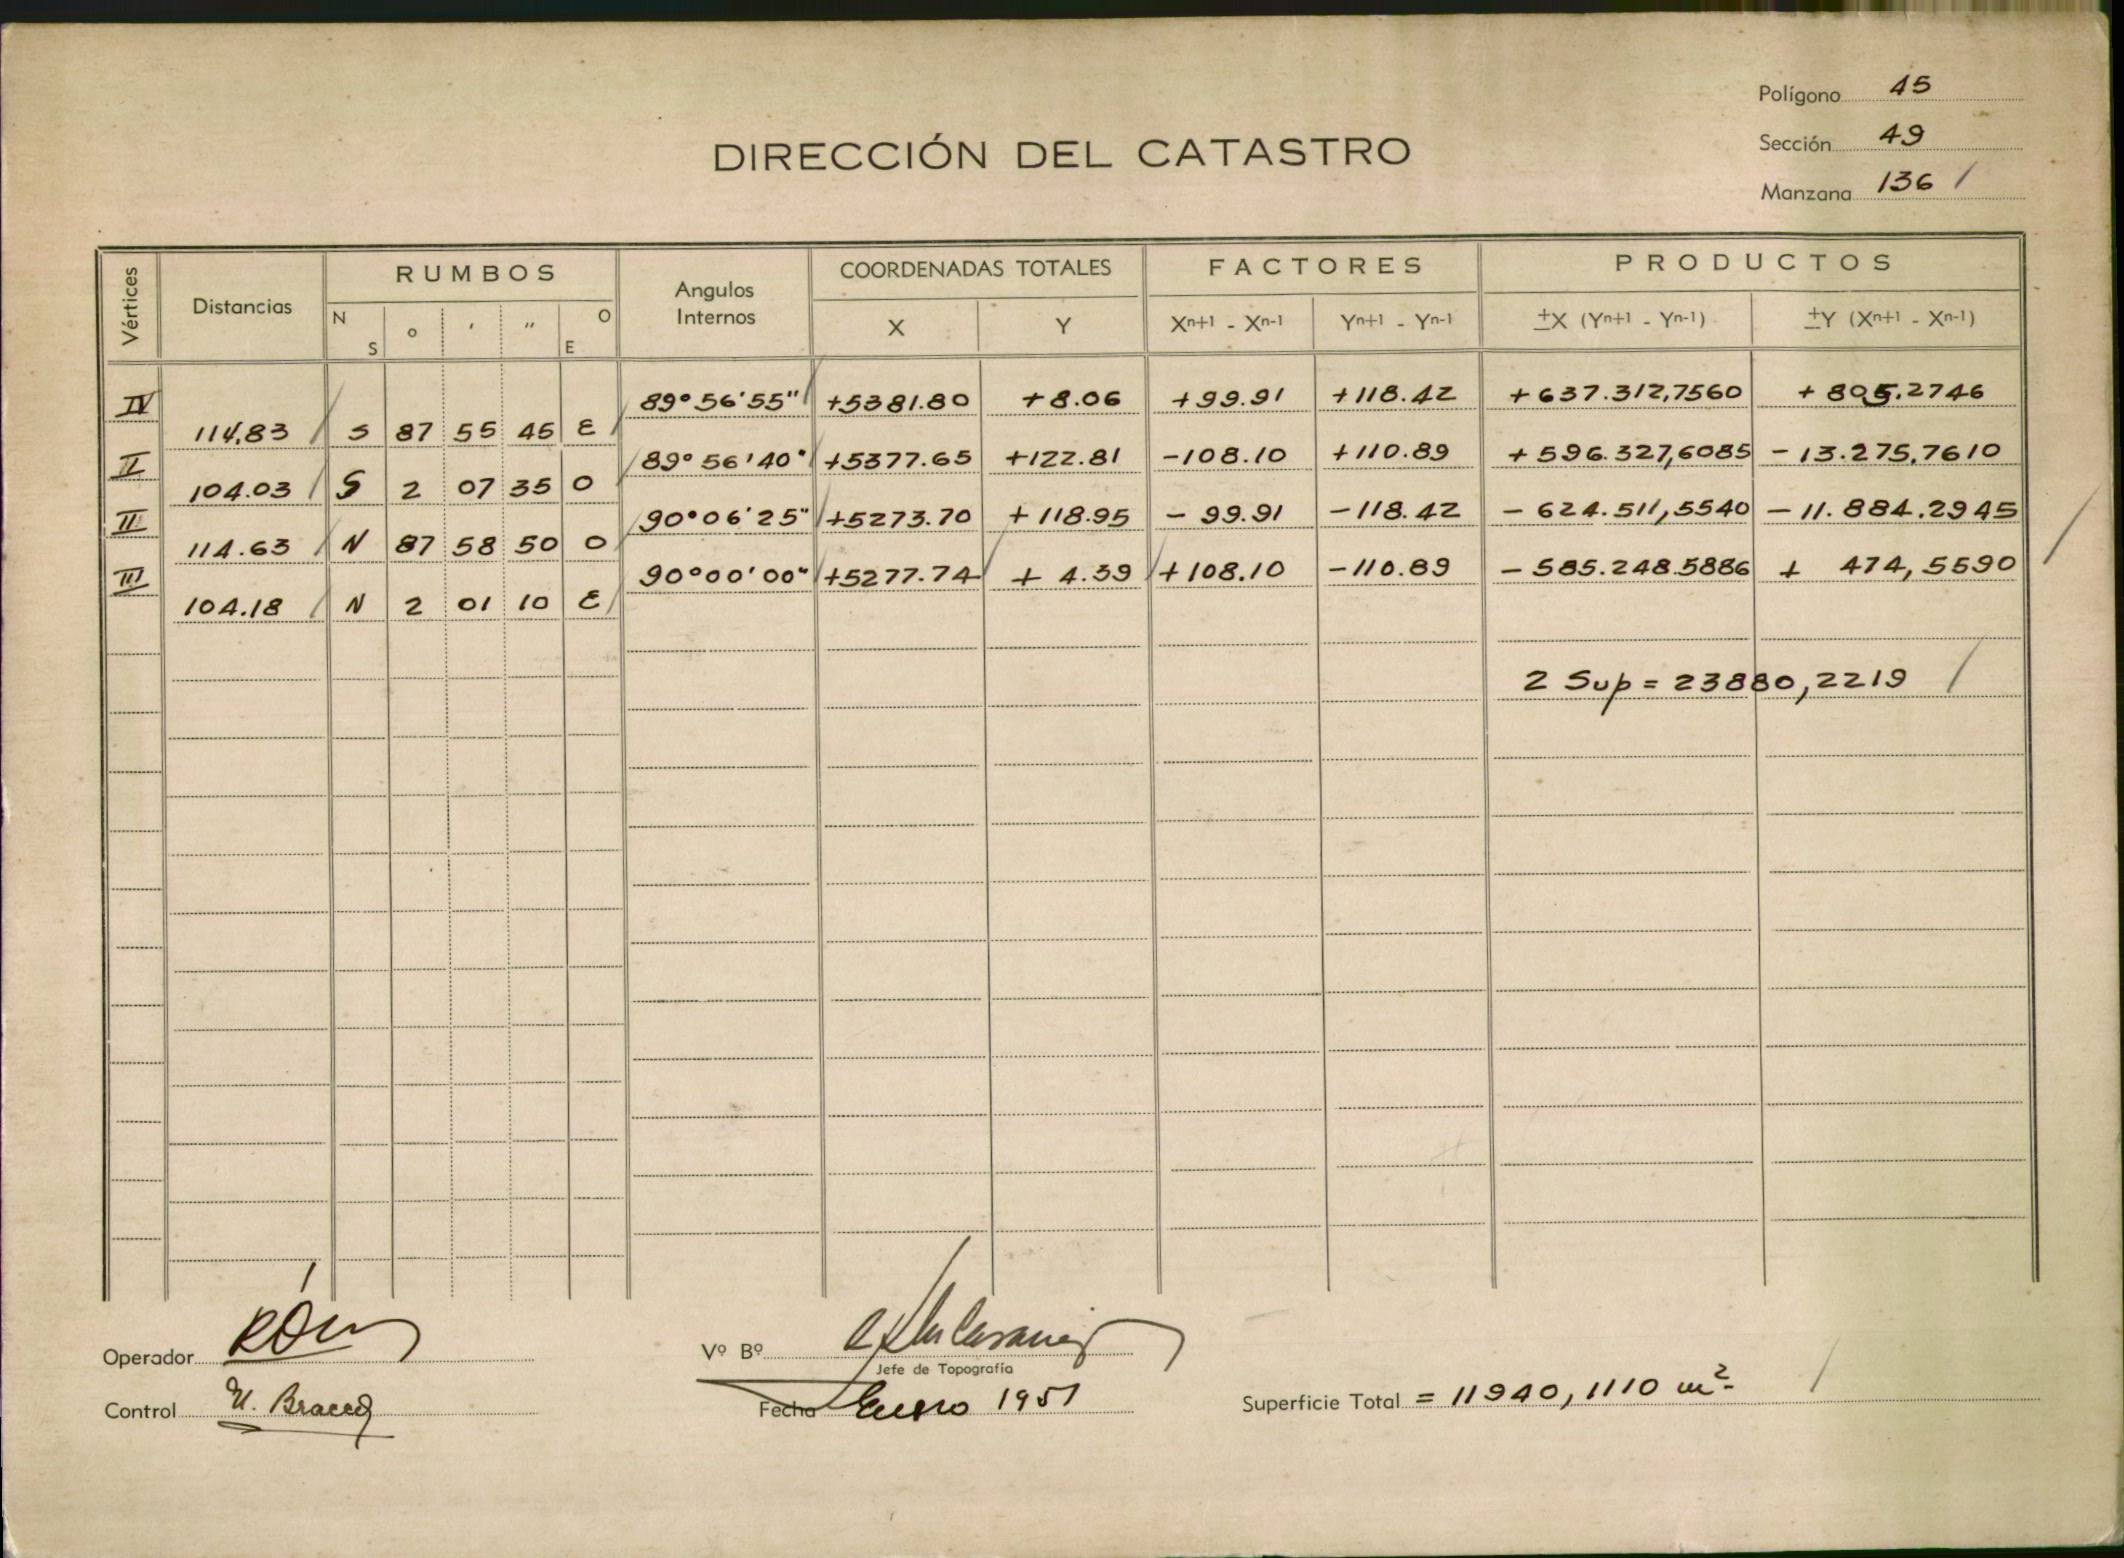 Polígono 45
Sección 49
Manzana 136
DIRECCIÓN DEL CATASTRO
Vértices Distancias RUMBOS Angulos Internos COORDENADAS TOTALES FACTORES PRODUCTOS
N S ° ' " O E X Y Xn+1 - Xn-1 Yn+1 - Yn-1 ±X (Yn+1 - Yn-1) ±Y (Xn+1 - Xn-1)
IV 89°56'55" +5381.80 +8.06 +99.91 +118.42 +637.312,7560 +805.2746
114.83 S 87 55 45 E
II 89°56'40" +5377.65 +122.81 -108.10 +110.89 +596.327,6085 -13.275.7610
104.03 S 2 07 35 O
II 90°06'25" +5273.70 +118.95 -99.91 -118.42 -624.511,5540 -11.884.2945
114.63 N 87 58 50 O
III 90°00'00" +5277.74 +4.39 +108.10 -110.89 -585.248.5886 +474,5590
104.18 N 2 01 10 E
2 Sup = 23880,2219
Operador
Vº Bº
Jefe de Topografía
Control
Fecha Enero 1951
Superficie Total = 11940,1110 m²